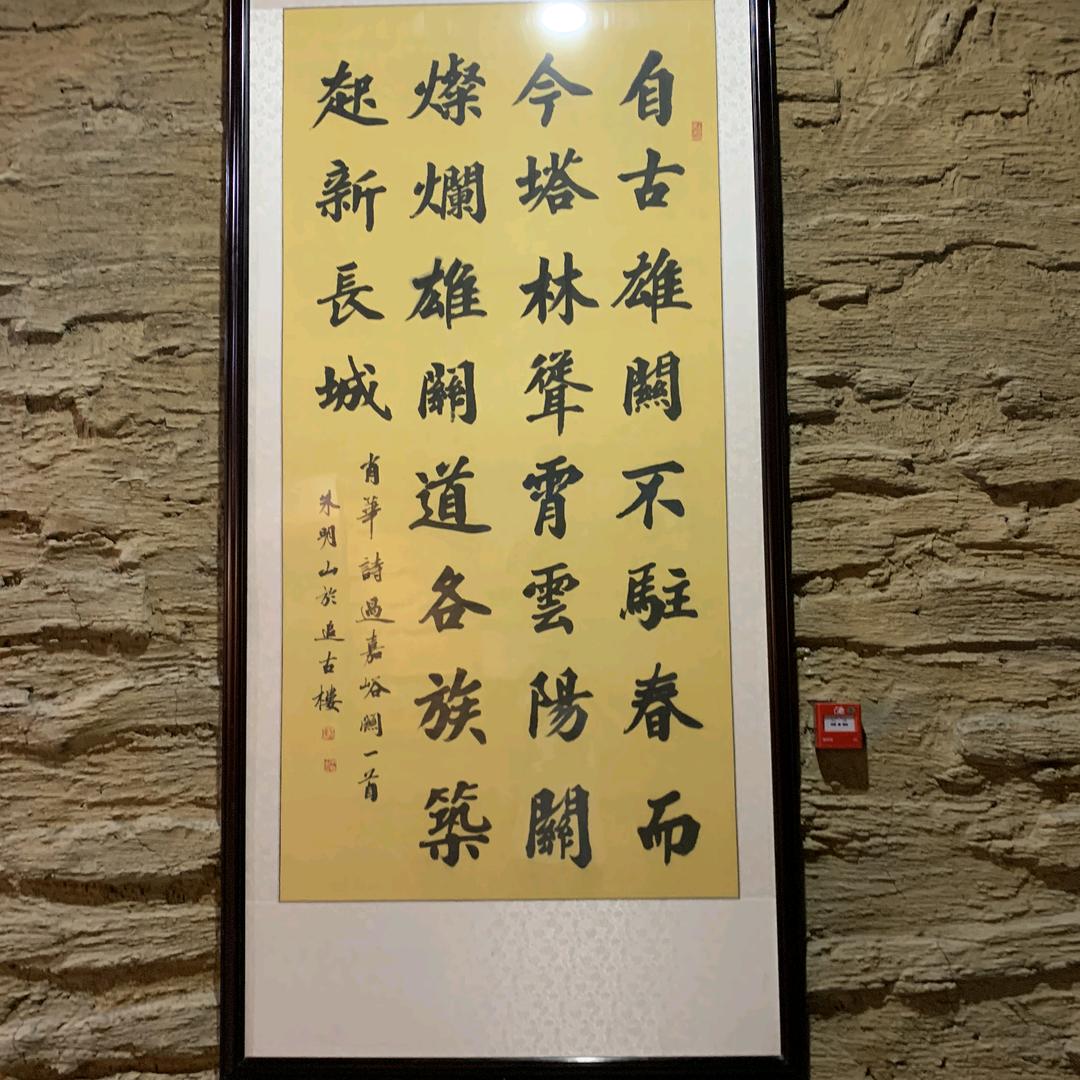 自古雄關不駐春而
今塔林聳霄雲陽關
燦爛雄關道各族築
起新長城
肖華詩過嘉峪關一首
朱明山於追古樓